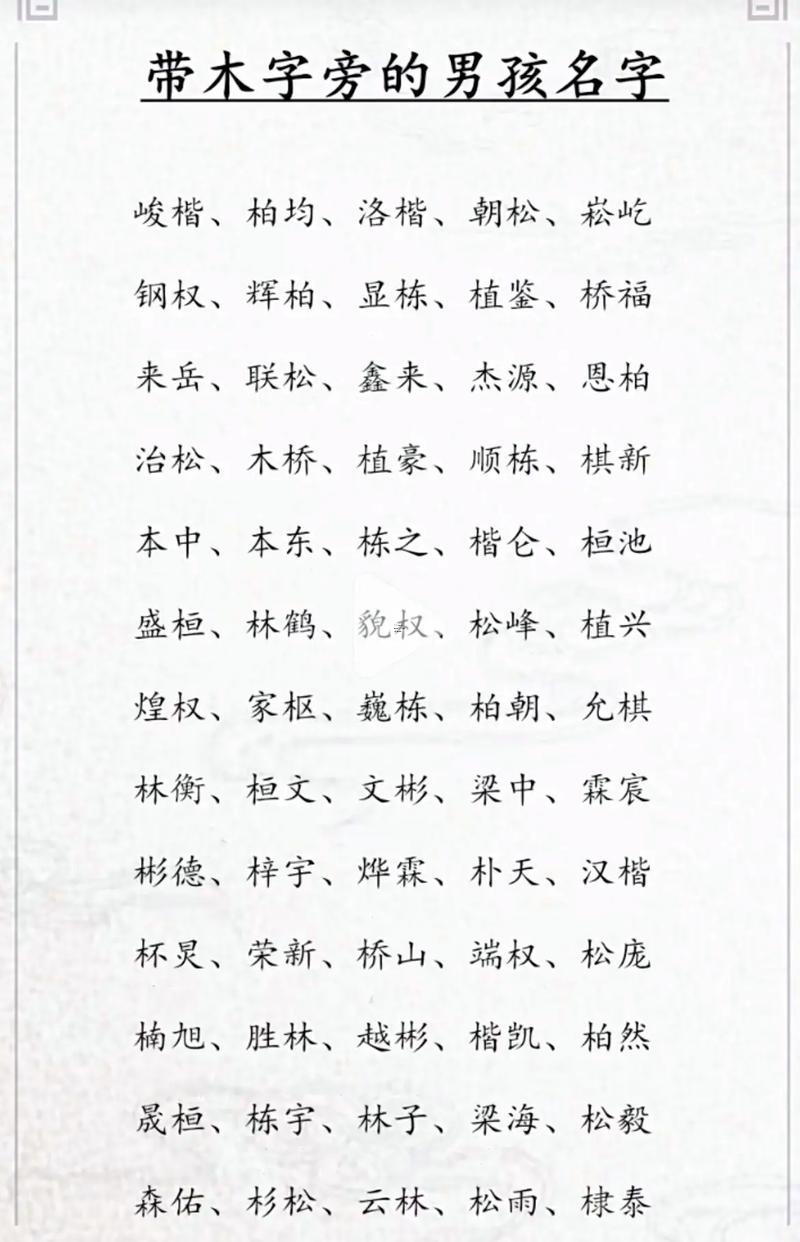 带木字旁的男孩名字
峻楷、柏均、洛楷、朝松、崧屹
钢权、辉柏、显栋、植鉴、桥福
来岳、联松、鑫来、杰源、恩柏
治松、木桥、植豪、顺栋、棋新
本中、本东、栋之、楷仑、桓池
盛桓、林鹤、貌权、松峰、植兴
煌权、家枢、巍栋、柏朝、允棋
林衡、桓文、文彬、梁中、霖宸
彬德、梓宇、烨霖、朴天、汉楷
杯炅、荣新、桥山、端权、松庞
楠旭、胜林、越彬、楷凯、柏然
晟桓、栋宇、林子、梁海、松毅
森佑、杉松、云林、松雨、棣泰